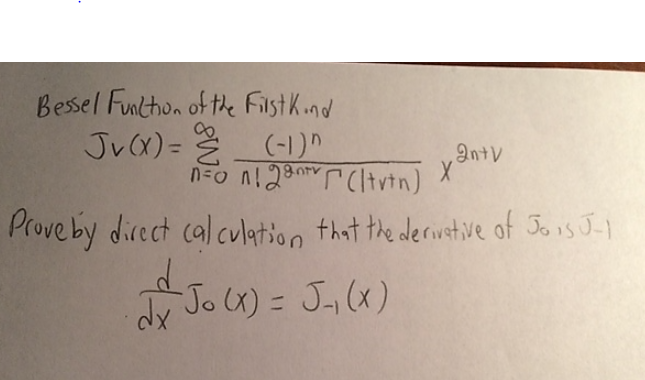 Bessel Function of the First Kind
Jν(x) = ∞ Σ n=0 (-1)^n / n! 2^(2n+ν) Γ(1+ν+n) x^(2n+ν)
Prove by direct calculation that the derivative of J0 is J-1
d/dx J0(x) = J-1(x)